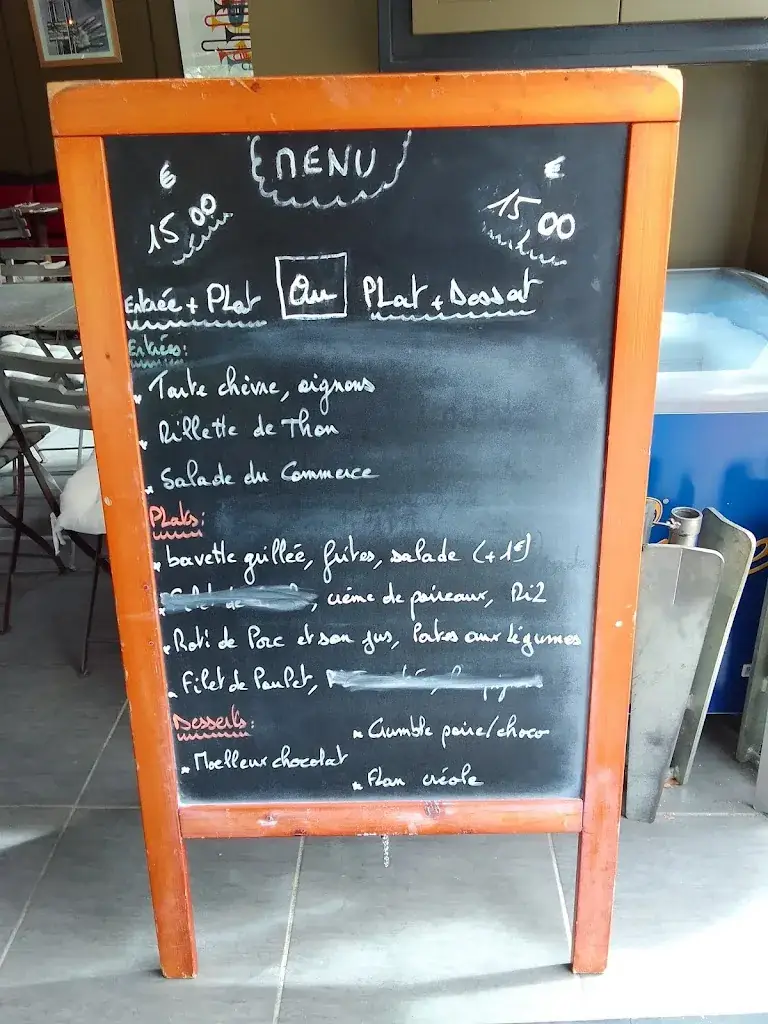 MENU
€ €
15 00 15 00
Entrée + Plat Ou Plat + Dessert
Entrées:
* Tarte chèvre, oignons
* Rillette de Thon
* Salade du Commerce
Plats:
* bavette grillée, frites, salade (+1€)
* , crème de poireaux, Riz
* Roti de Porc et son jus, Pates aux légumes
* Filet de Poulet,
Desserts:
* Crumble poire/choco
* Moelleux chocolat
* Flan créole